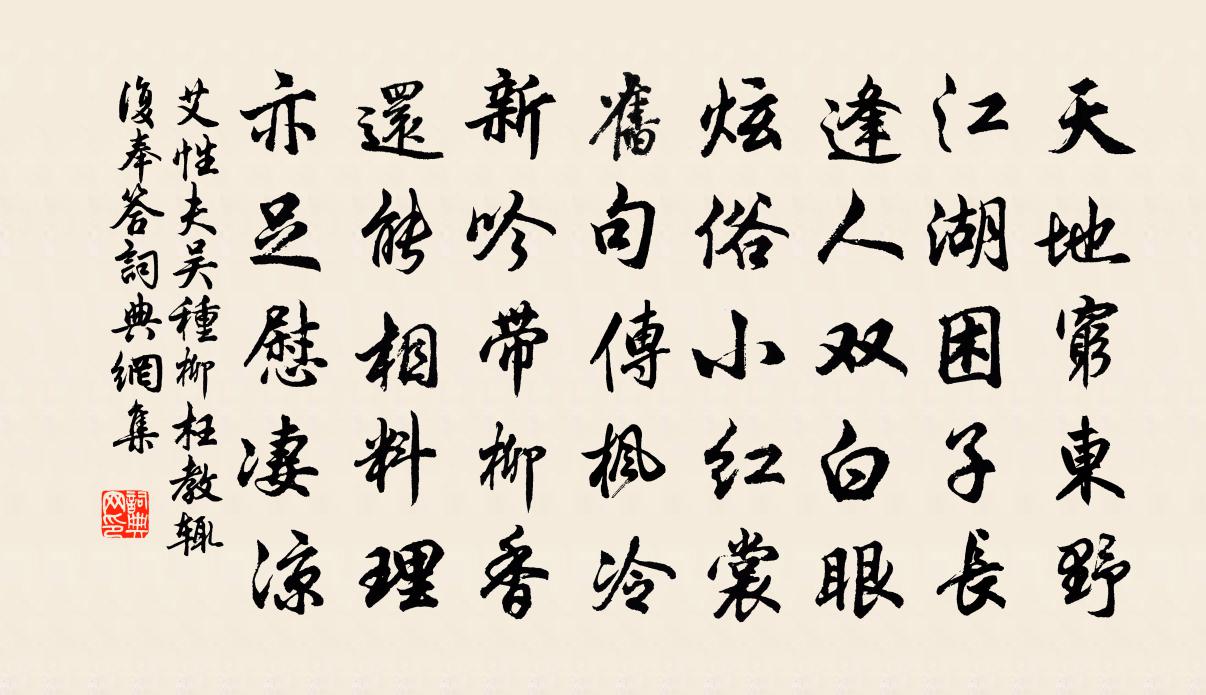 天地窮東野
江湖困子長
逢人双白眼
炫俗小紅裳
舊句傳楓冷
新吟帶柳香
還能相料理
亦足慰凄涼
艾性夫吴種柳枉教辄
復奉答詞典網集
詞典网印